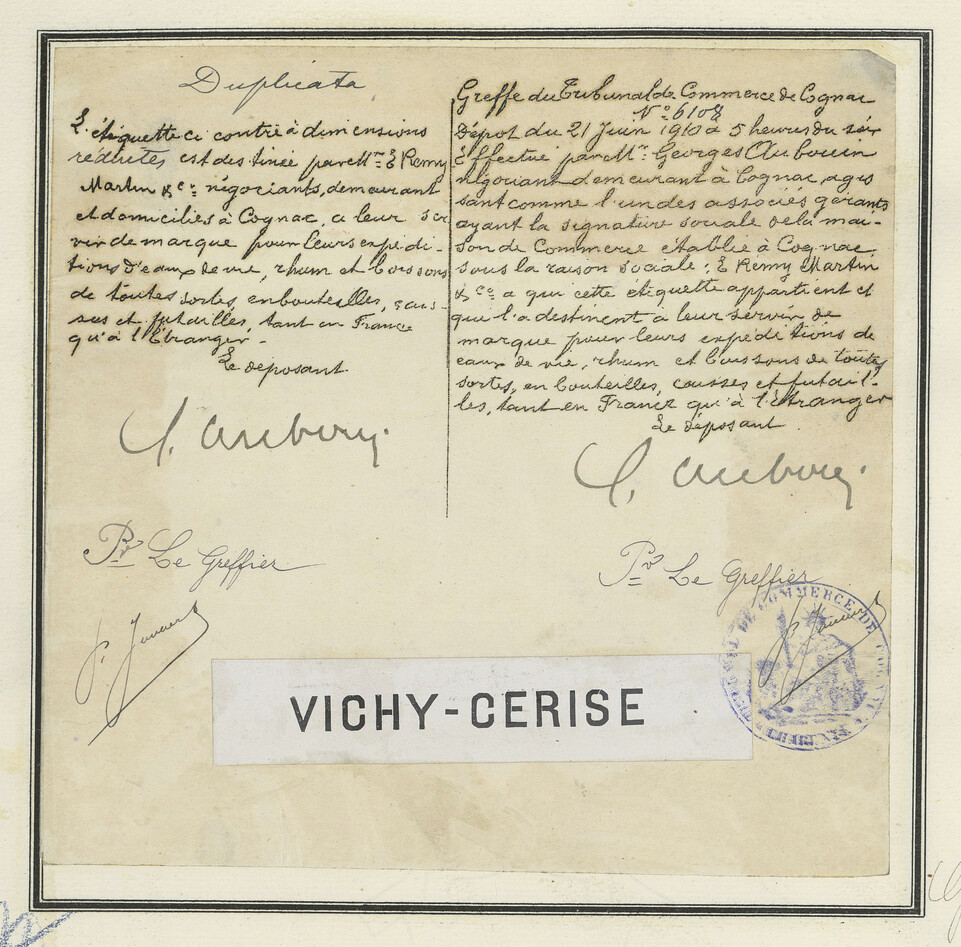 Duplicata
L'étiquette ci contre à dimensions
réduites est destinée par Mrs E Remy
Martin & Cie négociants, demeurant
et domiciliés à Cognac, a leur ser
vir de marque pour leurs expédi-
tions d'eaux de vie, rhum et boissons
de toutes sortes en bouteilles, cais-
ses et futailles, tant en France
qu'à l'étranger.
Le déposant
G. Aubouin
Pr Le Greffier
Greffe du Tribunal de Commerce de Cognac
No 6108
Dépot du 21 Juin 1910 à 5 heures du soir
Effectué par Mr Georges Aubouin
négociant demeurant à Cognac, agis
sant comme l'un des associés gérants
ayant la signature sociale de la mai-
son de Commerce établie à Cognac
sous la raison sociale: E Rémy Martin
& Cie a qui cette étiquette appartient et
qui l'a destinent à leur servir de
marque pour leurs expéditions de
eaux de vie, rhum et boissons de toutes
sortes, en bouteilles, caisses et futail-
les, tant en France qu'à l'étranger
Le déposant
G. Aubouin
Pr Le Greffier
TRIBUNAL DE COMMERCE DE COGNAC
CHARENTE
VICHY-CERISE